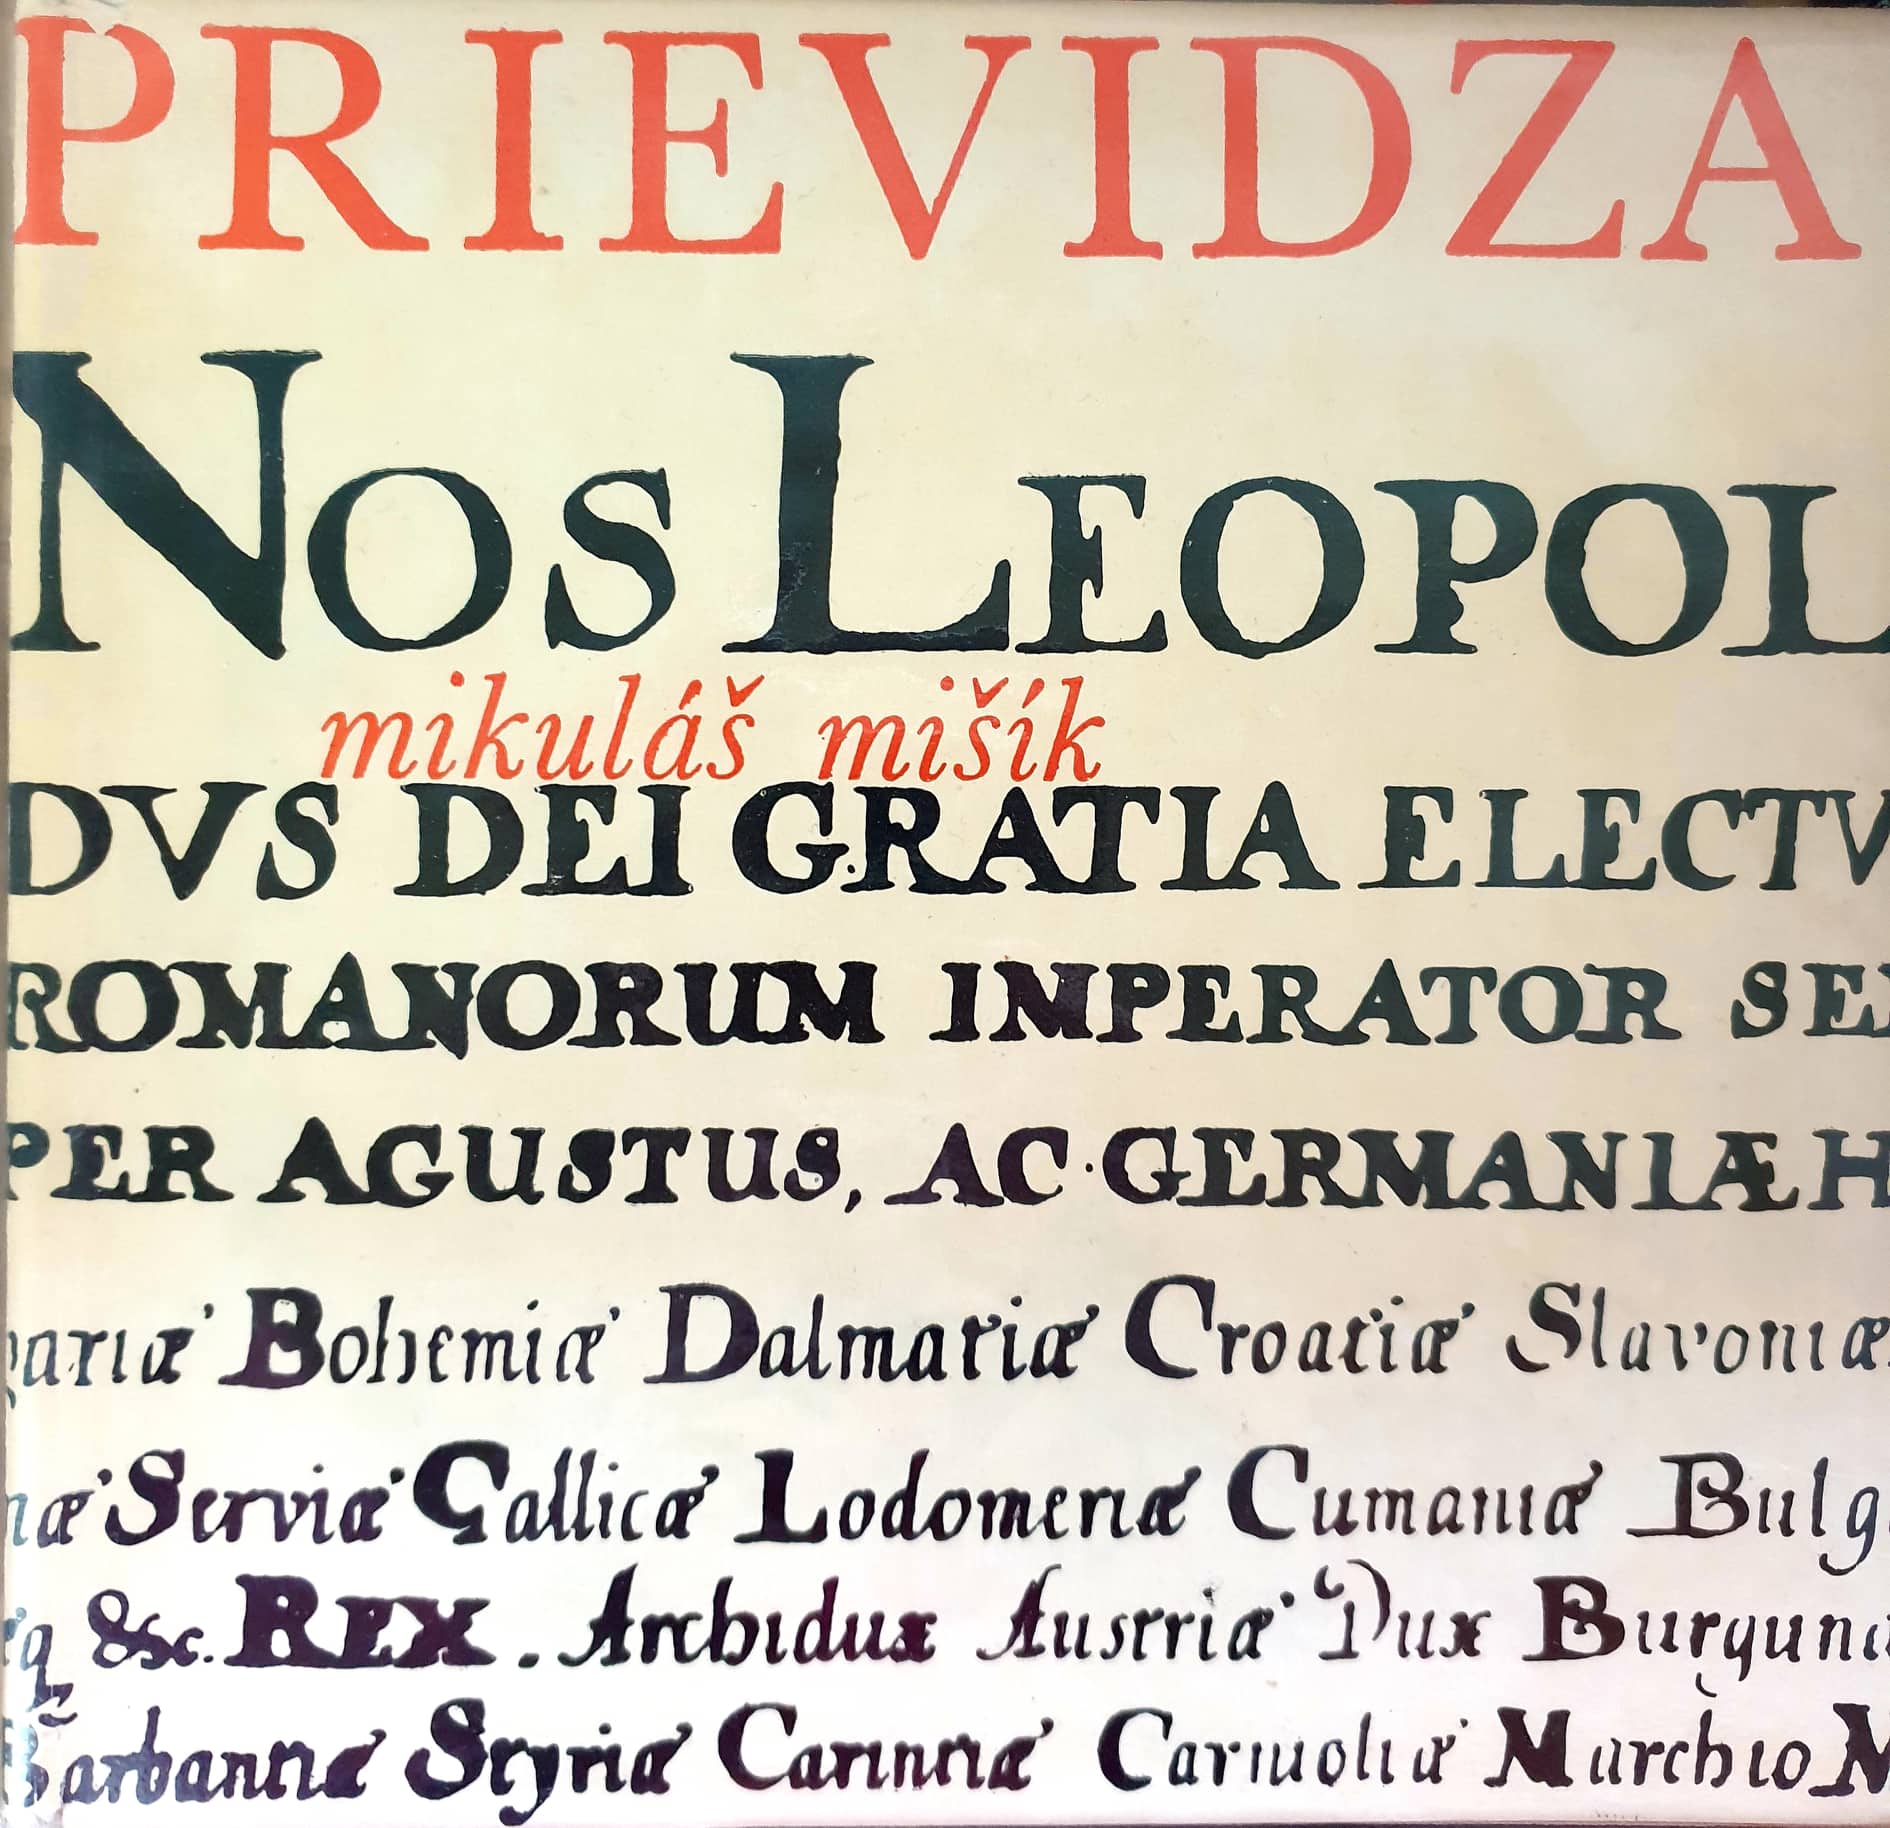 PRIEVIDZA
NOS LEOPOL
mikuláš mišík
DVS DEI G.RATIA ELECTV
ROMANORUM IMPERATOR SEM
PER AGUSTUS, AC·GERMANIÆ H
gariæ Bohemiæ Dalmatiæ Croatiæ Slavoniæ
næ Serviæ Gallicæ Lodomeriæ Cumaniæ Bulg
rq &c. REX. Archidux Austriæ Dux Burgund
Barbantiæ Styriæ Carintiæ Carnioliæ Marchio M